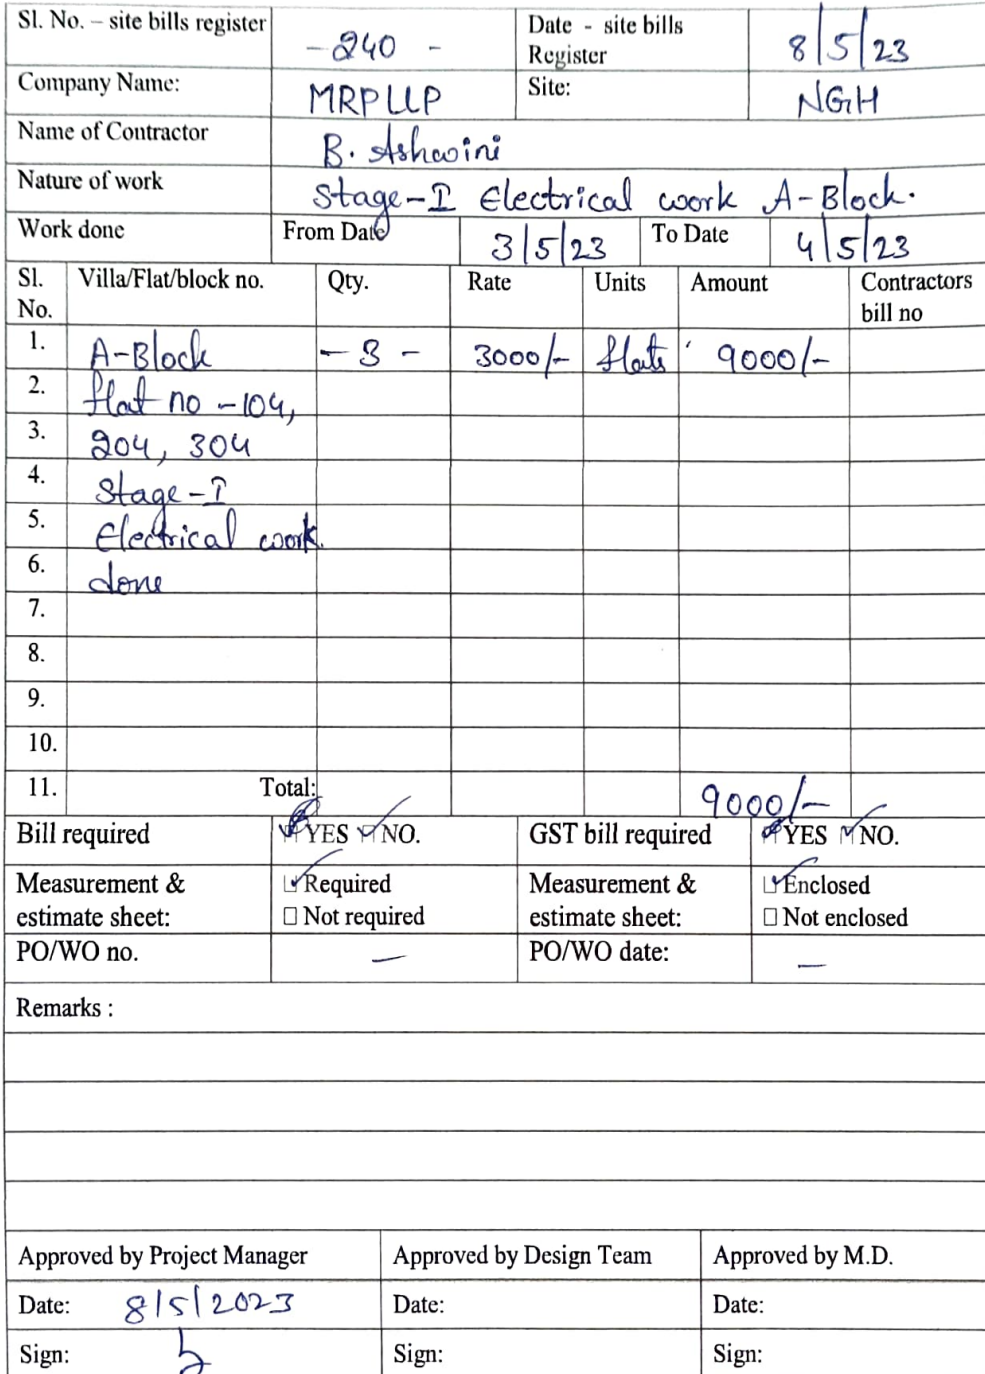 Sl. No. – site bills register -240 - Date - site bills Register 8/5/23
Company Name: MRPLLP Site: NGH
Name of Contractor B. Ashwini
Nature of work Stage-I Electrical work A-Block.
Work done From Date 3/5/23 To Date 4/5/23
Sl. No. Villa/Flat/block no. Qty. Rate Units Amount Contractors bill no
1. A-Block - 3 - 3000/- flats 9000/-
2. flat no -104,
3. 204, 304
4. Stage-I
5. Electrical work.
6. done
7.
8.
9.
10.
11. Total: 9000/-
Bill required YES NO. GST bill required YES NO.
Measurement & estimate sheet: Required Measurement & estimate sheet: Enclosed
Not required Not enclosed
PO/WO no. — PO/WO date: —
Remarks :
Approved by Project Manager Approved by Design Team Approved by M.D.
Date: 8/5/2023 Date: Date:
Sign: Sign: Sign: